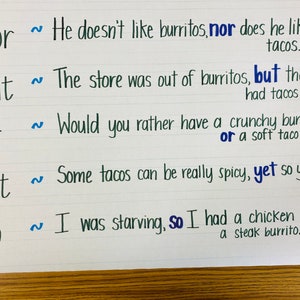 or ~ He doesn't like burritos, nor does he li
tacos.
t ~ The store was out of burritos, but th
had tacos
~ Would you rather have a crunchy bur
or a soft taco
t ~ Some tacos can be really spicy, yet so y
~ I was starving, so I had a chicken
a steak burrito.